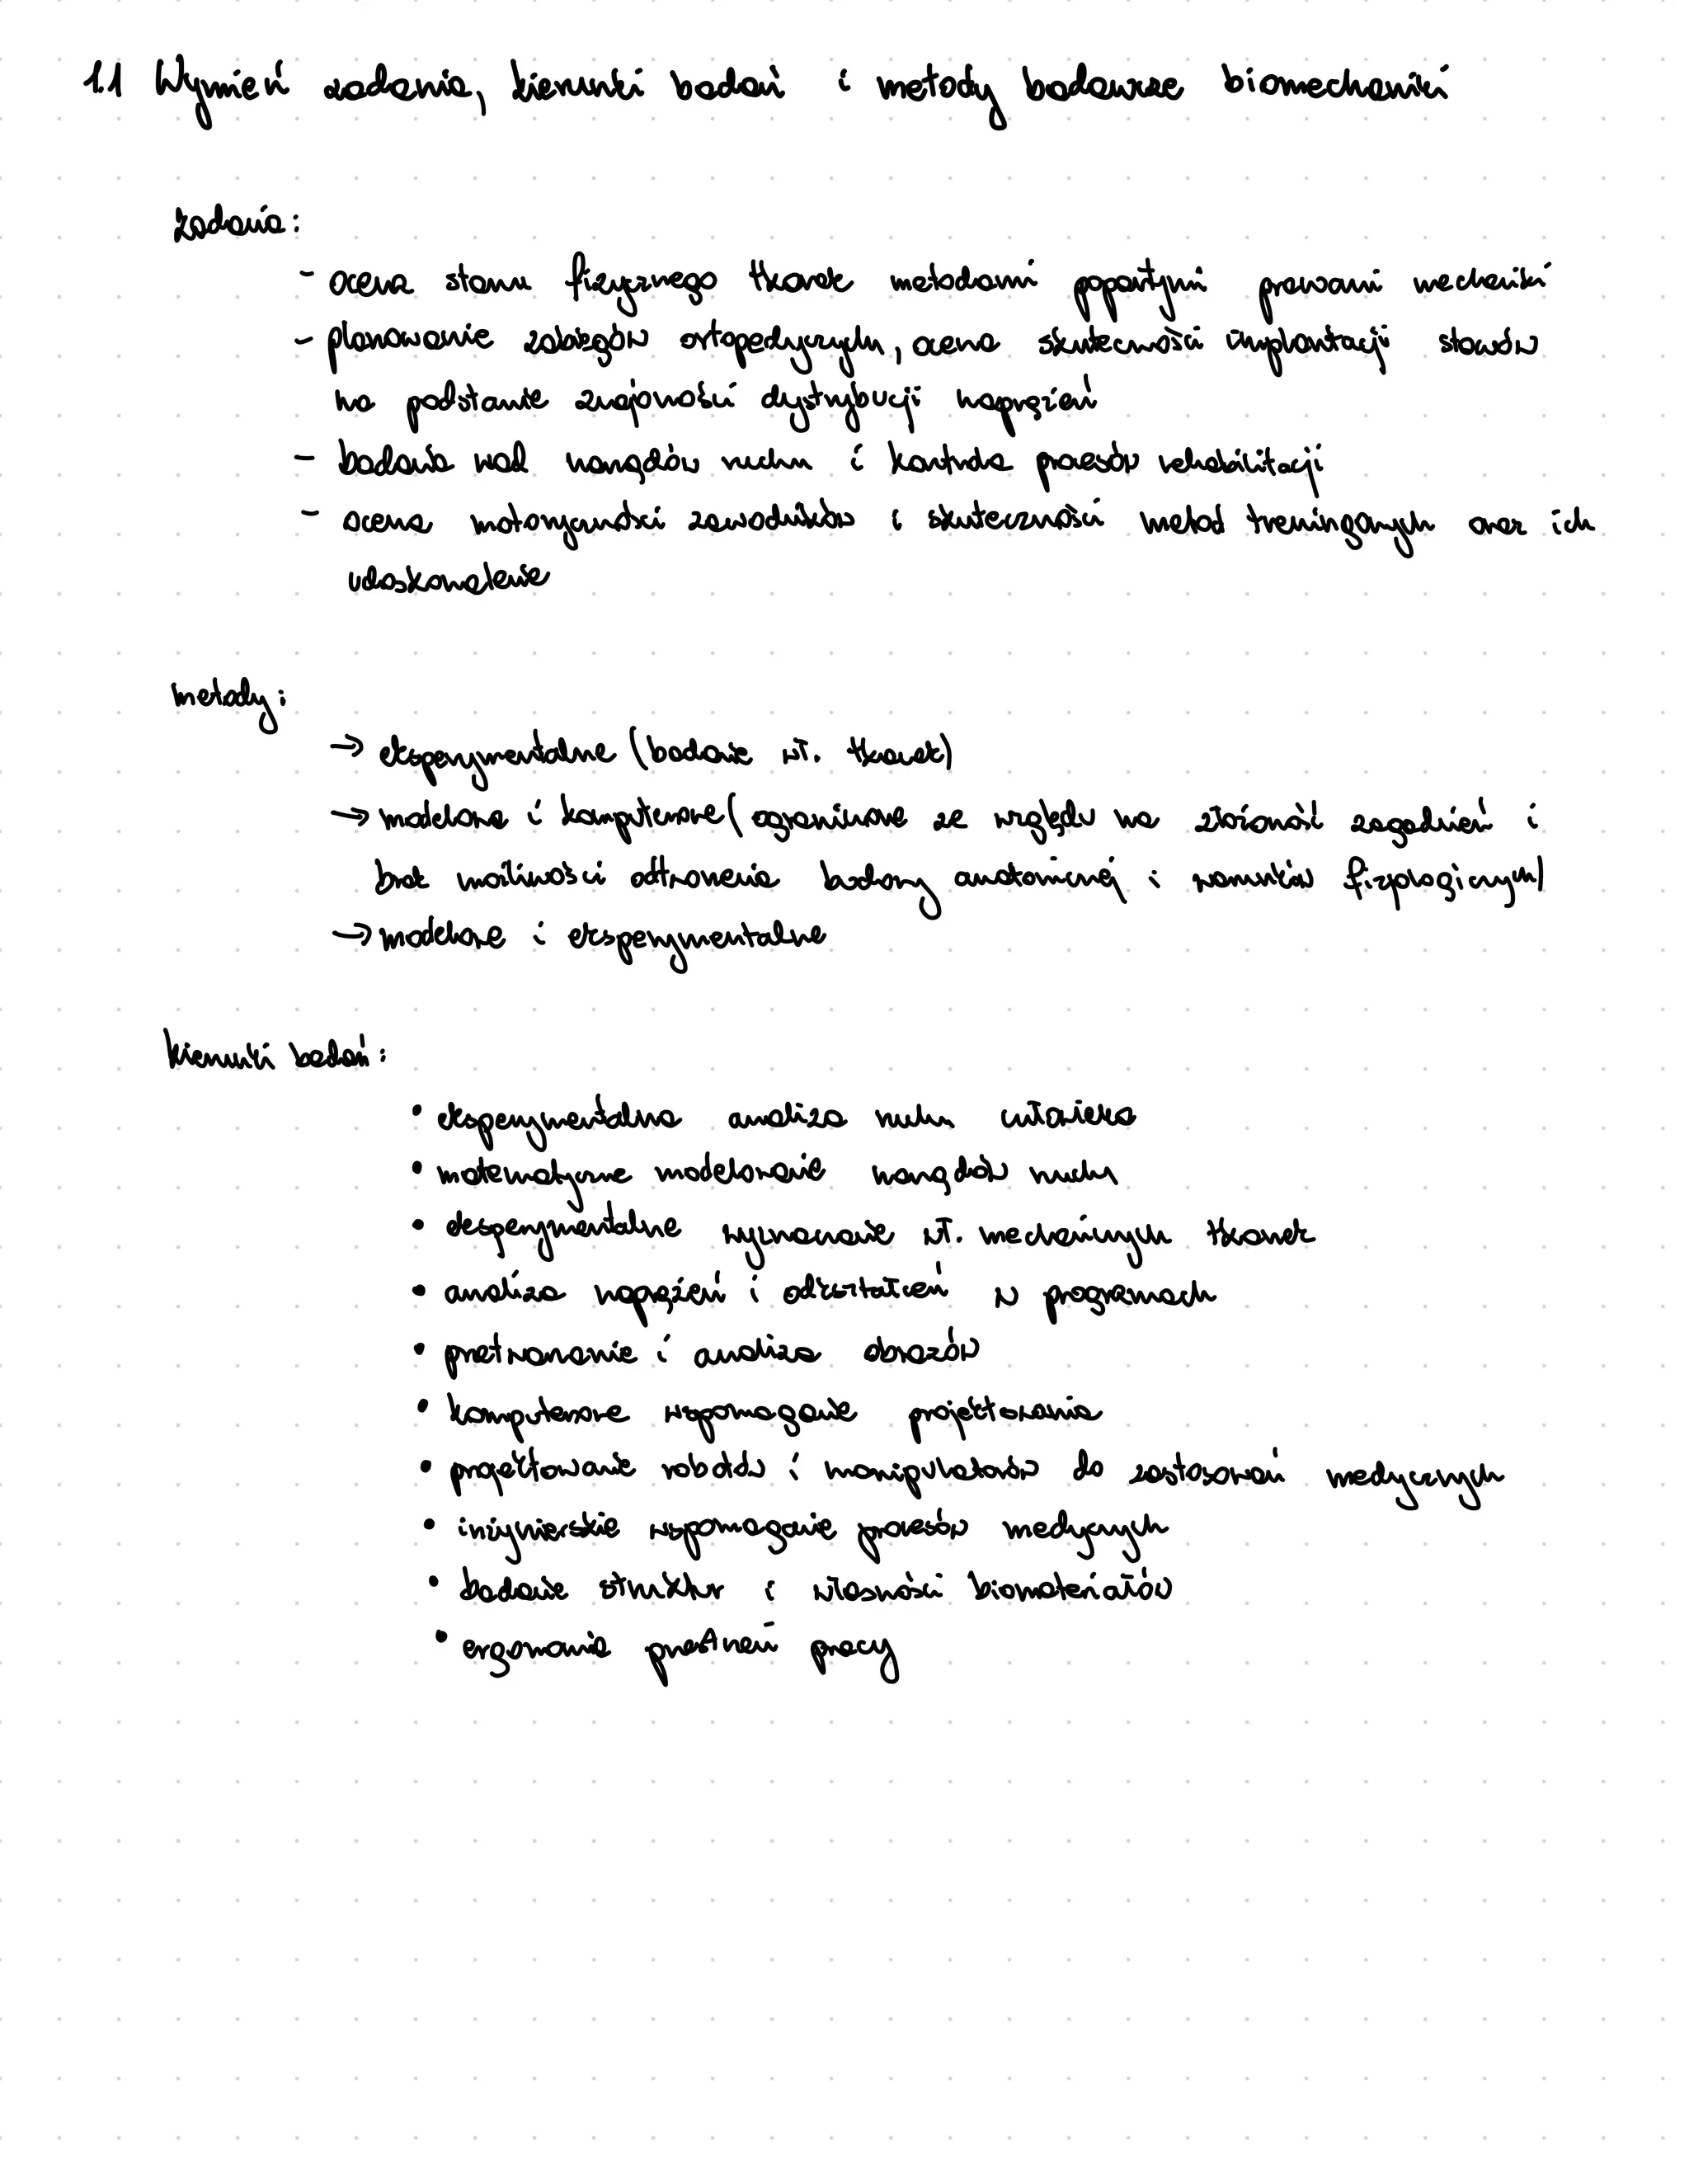 1.1 Wymień zadania, kierunki badań i metody badawcze biomechaniki
zadania:
- ocena stanu fizycznego tkanek metodami popartymi prawami mechaniki
- planowanie zabiegów ortopedycznych, ocena skuteczności implantacji stawów
na podstawie znajomości dystrybucji naprężeń
- badania wad narządów ruchu i kontrola procesów rehabilitacji
- ocena motoryczności zawodników i skuteczności metod treningowych oraz ich
udoskonalenie
metody:
→ eksperymentalne (badanie wł. tkanek)
→ modelowe i komputerowe (ograniczone ze względu na złożoność zagadnień i
brak możliwości odtworzenia budowy anatomicznej i warunków fizjologicznych)
→ modelowe i eksperymentalne
kierunki badań:
• eksperymentalna analiza ruchu człowieka
• matematyczne modelowanie narządów ruchu
• eksperymentalne wyznaczanie wł. mechanicznych tkanek
• analiza naprężeń i odkształceń w programach
• przetwarzanie i analiza obrazów
• komputerowe wspomaganie projektowania
• projektowanie robotów i manipulatorów do zastosowań medycznych
• inżynierskie wspomaganie procesów medycznych
• badanie struktur i własności biomateriałów
• ergonomia przestrzeni pracy